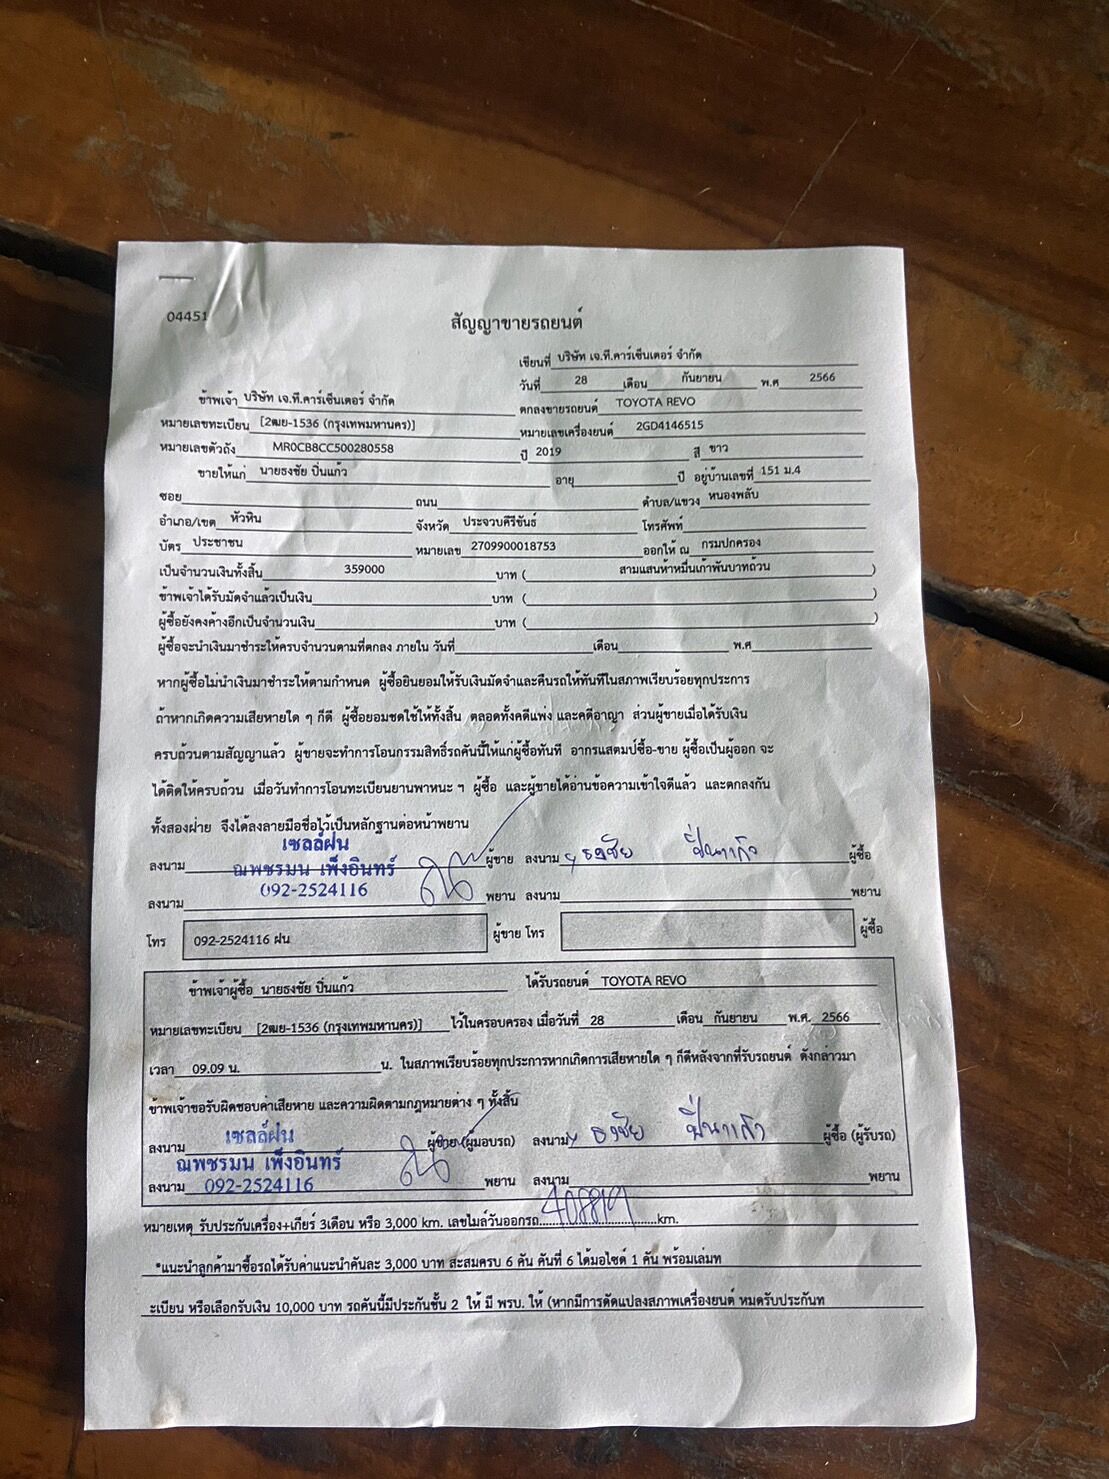 04451
สัญญาขายรถยนต์
เขียนที่ บริษัท เจ.ที.คาร์เซ็นเตอร์ จำกัด
วันที่ 28 เดือน กันยายน พ.ศ 2566
ข้าพเจ้า บริษัท เจ.ที.คาร์เซ็นเตอร์ จำกัด ตกลงขายรถยนต์ TOYOTA REVO
หมายเลขทะเบียน [2ฒย-1536 (กรุงเทพมหานคร)] หมายเลขเครื่องยนต์ 2GD4146515
หมายเลขตัวถัง MR0CB8CC500280558 ปี 2019 สี ขาว
ขายให้แก่ นายธงชัย ปิ่นแก้ว อายุ ปี อยู่บ้านเลขที่ 151 ม.4
ซอย ถนน ตำบล/แขวง หนองพลับ
อำเภอ/เขต หัวหิน จังหวัด ประจวบคีรีขันธ์ โทรศัพท์
บัตร ประชาชน หมายเลข 2709900018753 ออกให้ ณ กรมปกครอง
เป็นจำนวนเงินทั้งสิ้น 359000 บาท ( สามแสนห้าหมื่นเก้าพันบาทถ้วน )
ข้าพเจ้าได้รับมัดจำแล้วเป็นเงิน บาท ( )
ผู้ซื้อยังคงค้างอีกเป็นจำนวนเงิน บาท ( )
ผู้ซื้อจะนำเงินมาชำระให้ครบจำนวนตามที่ตกลง ภายใน วันที่ เดือน พ.ศ
หากผู้ซื้อไม่นำเงินมาชำระให้ตามกำหนด ผู้ซื้อยินยอมให้รับเงินมัดจำและคืนรถให้ทันทีในสภาพเรียบร้อยทุกประการ
ถ้าหากเกิดความเสียหายใด ๆ ก็ดี ผู้ซื้อยอมชดใช้ให้ทั้งสิ้น ตลอดทั้งคดีแพ่ง และคดีอาญา ส่วนผู้ขายเมื่อได้รับเงิน
ครบถ้วนตามสัญญาแล้ว ผู้ขายจะทำการโอนกรรมสิทธิ์รถคันนี้ให้แก่ผู้ซื้อทันที อากรแสตมป์ซื้อ-ขาย ผู้ซื้อเป็นผู้ออก จะ
ได้ติดให้ครบถ้วน เมื่อวันทำการโอนทะเบียนยานพาหนะ ฯ ผู้ซื้อ และผู้ขายได้อ่านข้อความเข้าใจดีแล้ว และตกลงกัน
ทั้งสองฝ่าย จึงได้ลงลายมือชื่อไว้เป็นหลักฐานต่อหน้าพยาน
เซลล์ฝน
ลงนาม ณพชรมน เพ็งอินทร์ ผู้ขาย ลงนาม ธงชัย ปิ่นแก้ว ผู้ซื้อ
ลงนาม 092-2524116 พยาน ลงนาม พยาน
โทร 092-2524116 ฝน ผู้ขาย โทร ผู้ซื้อ
ข้าพเจ้าผู้ซื้อ นายธงชัย ปิ่นแก้ว ได้รับรถยนต์ TOYOTA REVO
หมายเลขทะเบียน [2ฒย-1536 (กรุงเทพมหานคร)] ไว้ในครอบครอง เมื่อวันที่ 28 เดือน กันยายน พ.ศ. 2566
เวลา 09.09 น. น. ในสภาพเรียบร้อยทุกประการหากเกิดการเสียหายใด ๆ ก็ดีหลังจากที่รับรถยนต์ ดังกล่าวมา
ข้าพเจ้าขอรับผิดชอบค่าเสียหาย และความผิดตามกฎหมายต่าง ๆ ทั้งสิ้น
ลงนาม เซลล์ฝน ผู้ขาย (ผู้มอบรถ) ลงนาม ธงชัย ปิ่นแก้ว ผู้ซื้อ (ผู้รับรถ)
ณพชรมน เพ็งอินทร์
ลงนาม 092-2524116 พยาน ลงนาม พยาน
หมายเหตุ รับประกันเครื่อง+เกียร์ 3เดือน หรือ 3,000 km. เลขไมล์วันออกรถ km.
*แนะนำลูกค้ามาซื้อรถได้รับค่าแนะนำคันละ 3,000 บาท สะสมครบ 6 คัน คันที่ 6 ได้มอไซด์ 1 คัน พร้อมเล่มท
ะเบียน หรือเลือกรับเงิน 10,000 บาท รถคันนี้มีประกันชั้น 2 ให้ มี พรบ. ให้ (หากมีการดัดแปลงสภาพเครื่องยนต์ หมดรับประกันท